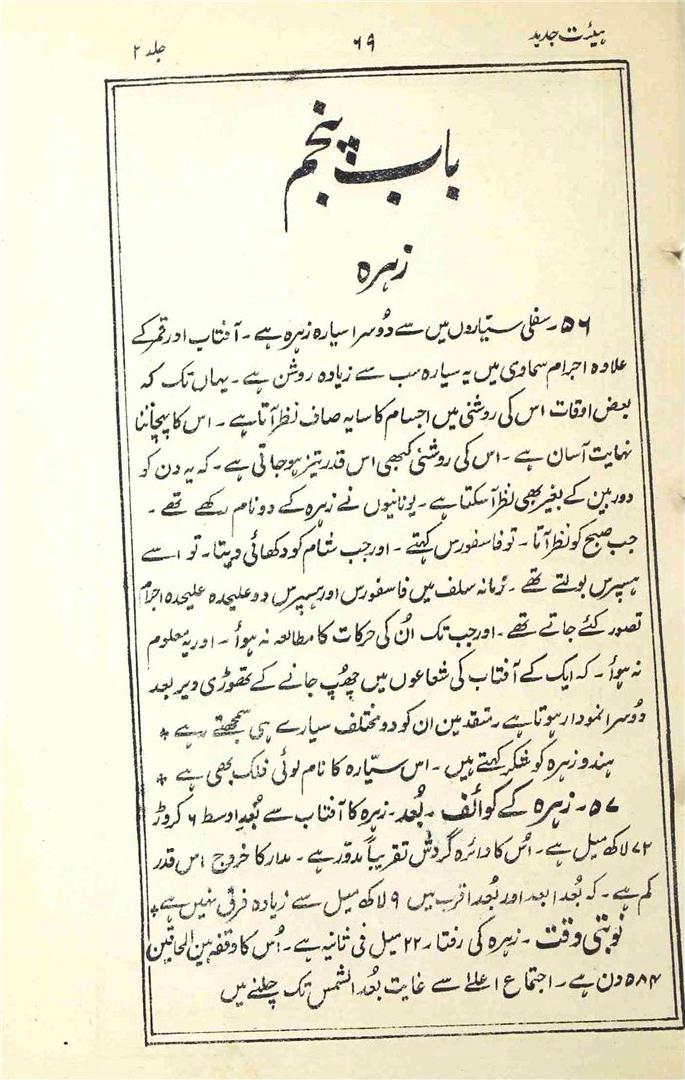 ہیئت جدید ۶۹ جلد ۲
باب پنجم
زہرہ
۵۶۔ سفلی سیّاروں میں سے دُوسرا سیارہ زہرہ ہے۔ آفتاب اور قمر کے
علاوہ اجرام سماوی میں یہ سیارہ سب سے زیادہ روشن ہے۔ یہاں تک کہ
بعض اوقات اس کی روشنی میں اجسام کا سایہ صاف نظر آتا ہے۔ اس کا پہچاننا
نہایت آسان ہے۔ اس کی روشنی کبھی اس قدر تیز ہو جاتی ہے۔ کہ یہ دن کو
دوربین کے بغیر بھی نظر آ سکتا ہے۔ یونانیوں نے زہرہ کے دو نام رکھے تھے۔
جب صبح کو نظر آتا۔ تو فاسفورس کہتے۔ اور جب شام کو دکھائی دیتا۔ تو اسے
ہسپرس بولتے تھے۔ زمانہ سلف میں فاسفورس اور ہسپرس دو علیحدہ علیحدہ اجرام
تصور کئے جاتے تھے۔ اور جب تک اُن کی حرکات کا مطالعہ نہ ہوأ۔ اور یہ معلوم
نہ ہوأ۔ کہ ایک کے آفتاب کی شعاعوں میں چھُپ جانے کے تھوڑی دیر بعد
دُوسرا نمودار ہوتا ہے۔ متقدمین ان کو دو مختلف سیارے ہی سمجھتے رہے *
ہندو زہرہ کو شکر کہتے ہیں۔ اس سیّارہ کا نام لولیٔ فلک بھی ہے *
۵۷۔ زہرہ کے کوائف۔ بُعد۔ زہرہ کا آفتاب سے بُعدِ اوسط ۶ کروڑ
۷۲ لاکھ میل ہے۔ اُس کا دائرہ گردش تقریباً مدوّر ہے۔ مدار کا خروج اس قدر
کم ہے۔ کہ بُعد ابعد اور بُعد اقرب میں ۹ لاکھ میل سے زیادہ فرق نہیں ہے *
نوبتی وقت۔ زہرہ کی رفتار ۲۲ میل فی ثانیہ ہے۔ اُس کا وقفہ بین الحاقین
۵۸۴ دن ہے۔ اجتماع اعلےٰ سے غایت بُعد الشمس تک چلنے میں